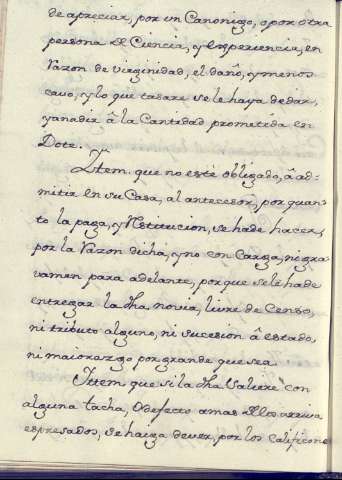 de apreciar, por un Canonigo, o por otra
persona de Ciencia, y Experiencia, en
razon de virginidad, el daño, y menos
cavo, y lo que tasare se le haya de dar,
y anadir â la Cantidad prometida en
Dote.
Ytem. que no esté obligado, â ad-
mitir en su Casa, al antecesor, por quan-
to la paga, y restitucion, se ha de hacer,
por la razon dicha, y no con Carga, ni gra
vamen para adelante, porque se le ha de
entregar la dha novia, livre de Censo,
ni tributo alguno, ni sucesion â estado,
ni maiorazgo por grande que sea
Yttem que si la dha saliere con
alguna tacha, o defecto a mas de los arriva
espresados, se haiga de ver, por los calificone